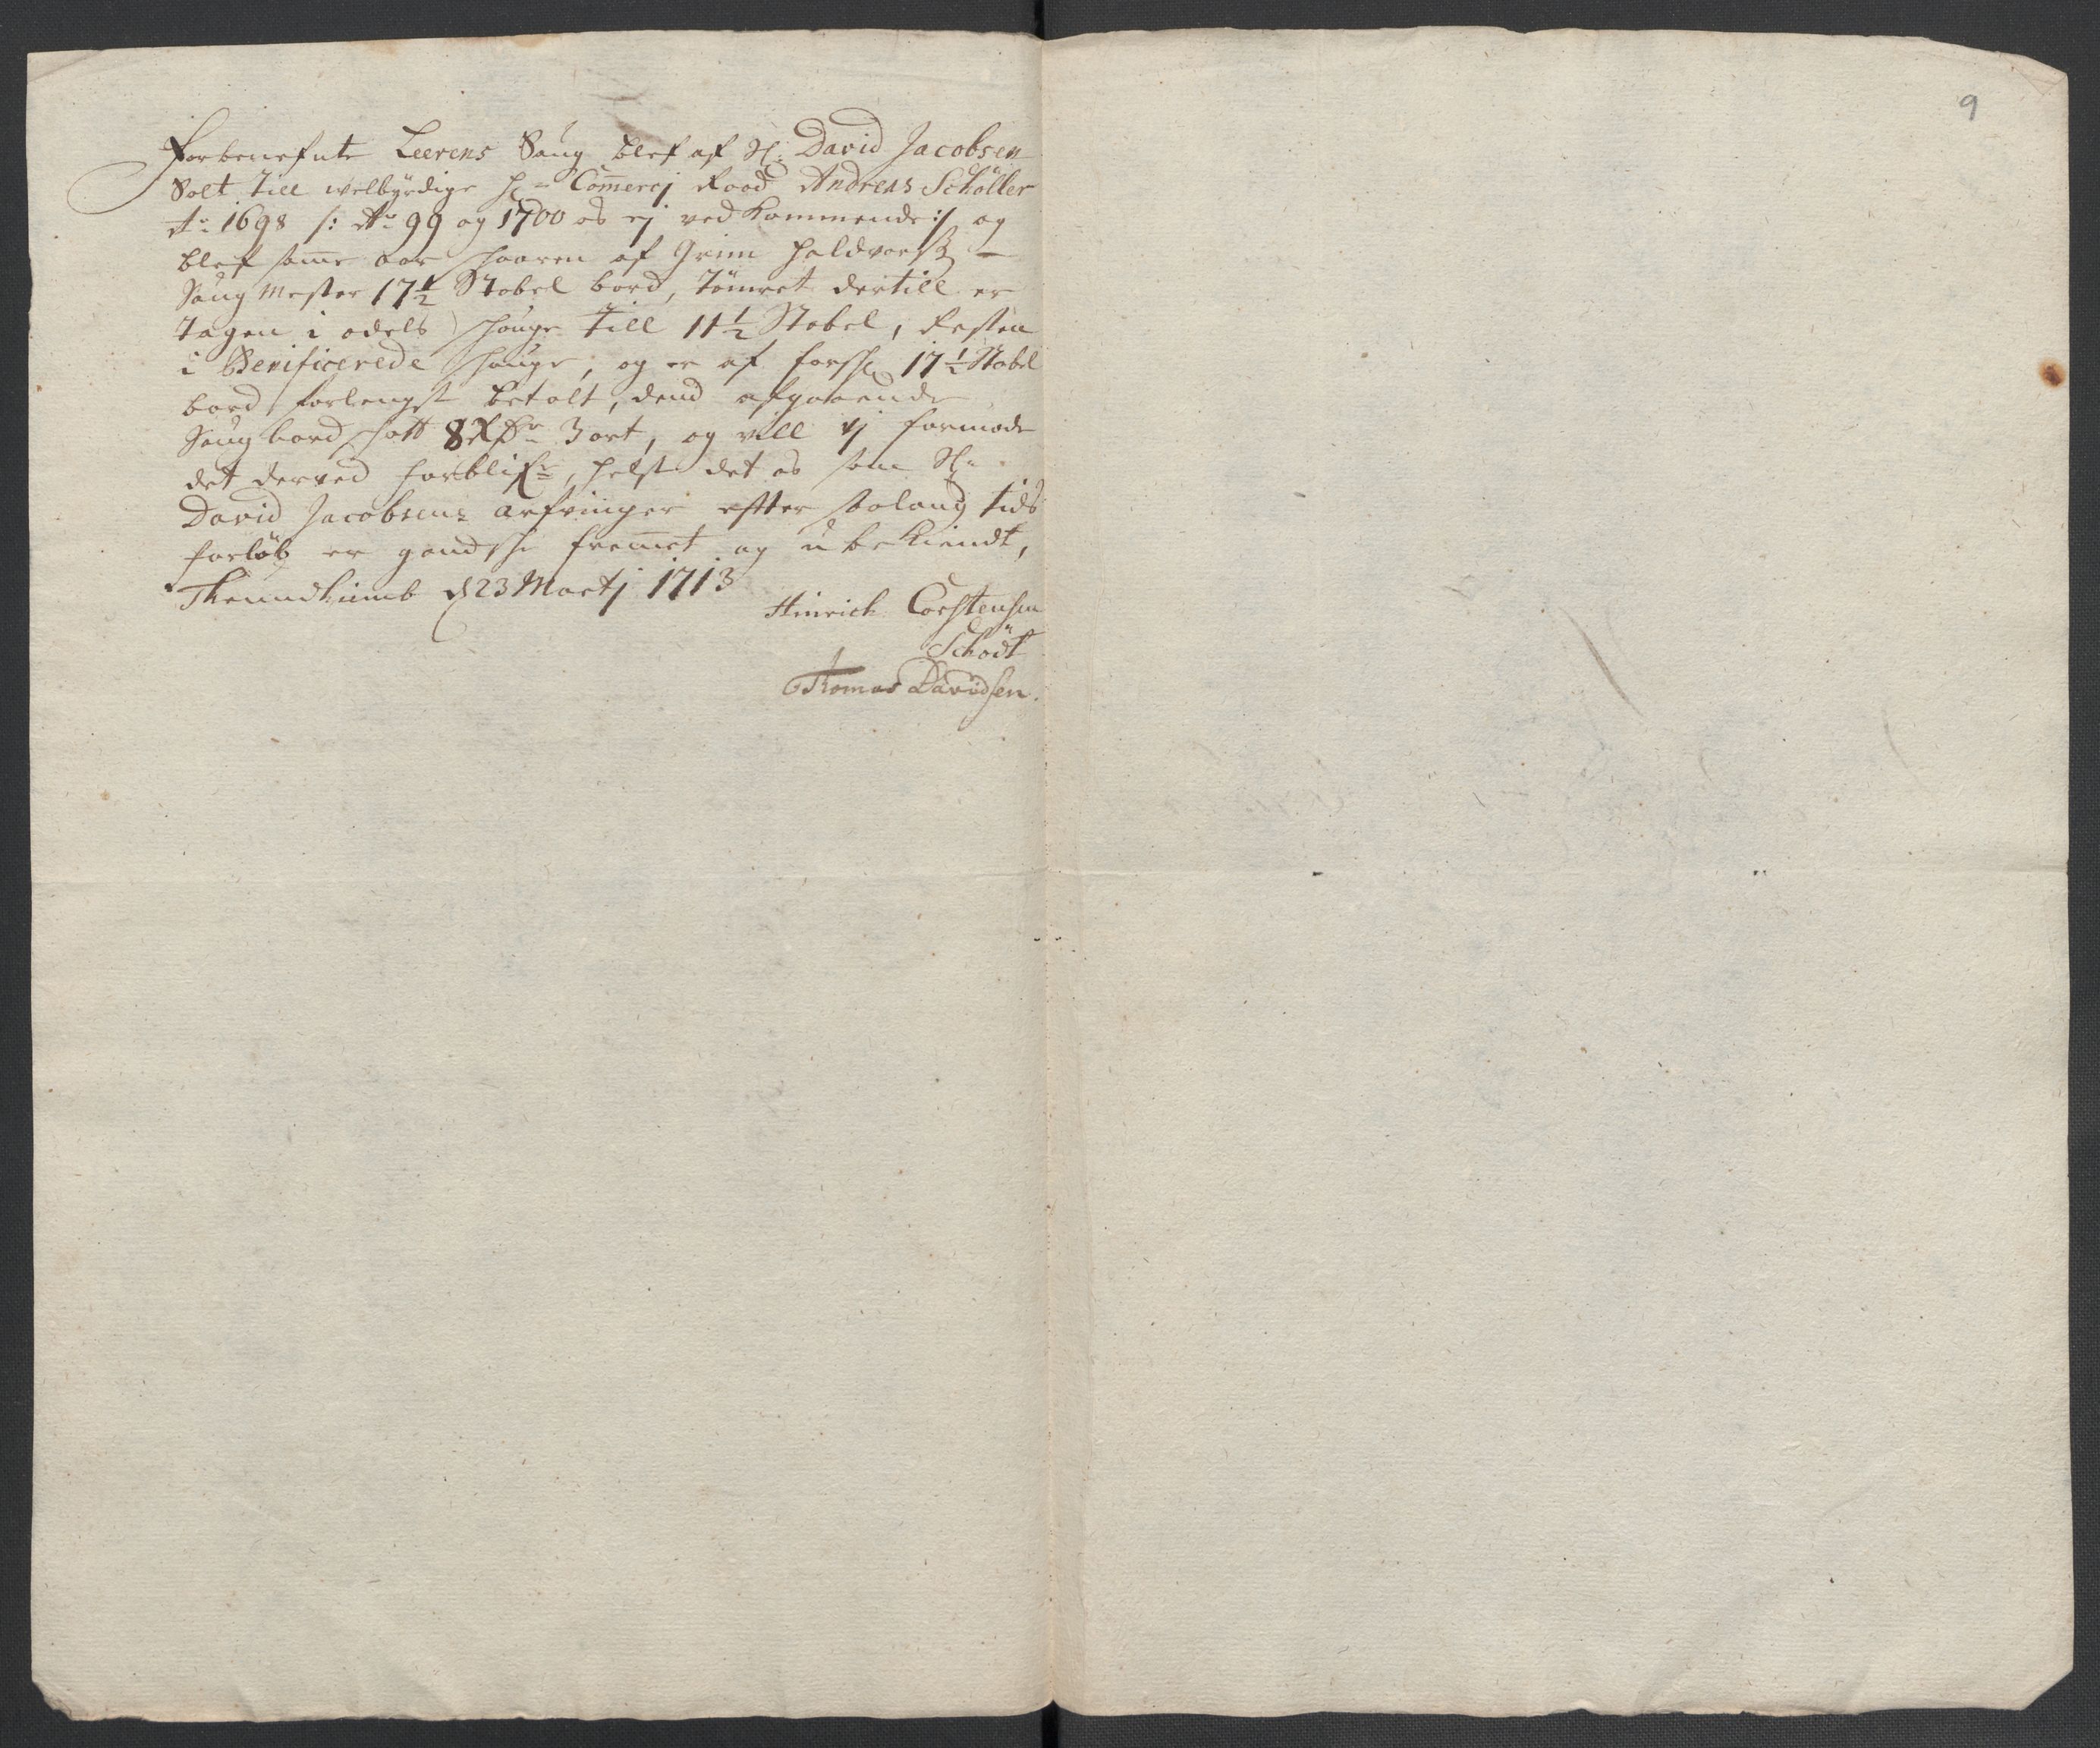 9
Forbenefnte Leerens Saug blef af Sl: David Jacobsen
Solt till welbyrdige H:r Com̄ercj Raad Andreas Schöller
Ao 1698 /: Ao 99 og 1700 os ej ved kommende :/ og
blef sam̄e aar skaaren af Grim Haldvors:
Saug Mester 17½ Stabel bord, Tömret dertill er
tagen i odels skouge till 11½ Stabel, Resten
i Benificerede skouge, og er af forsk: 17½ Stabel
bord forlengst betalt, dend afgaaende
Saug bord skatt 8 Rdr 3 ort, og vill ej formode
det derved forblifr, helst det os som Sl:
David Jacobsens arfvinger efter saalang tids
forløb er gandske frem̄et og ubekiendt,
Thrundhiemb d 23 Martj 1713
Hinrich Carstensen
Schödt
Thomas Davidsen.